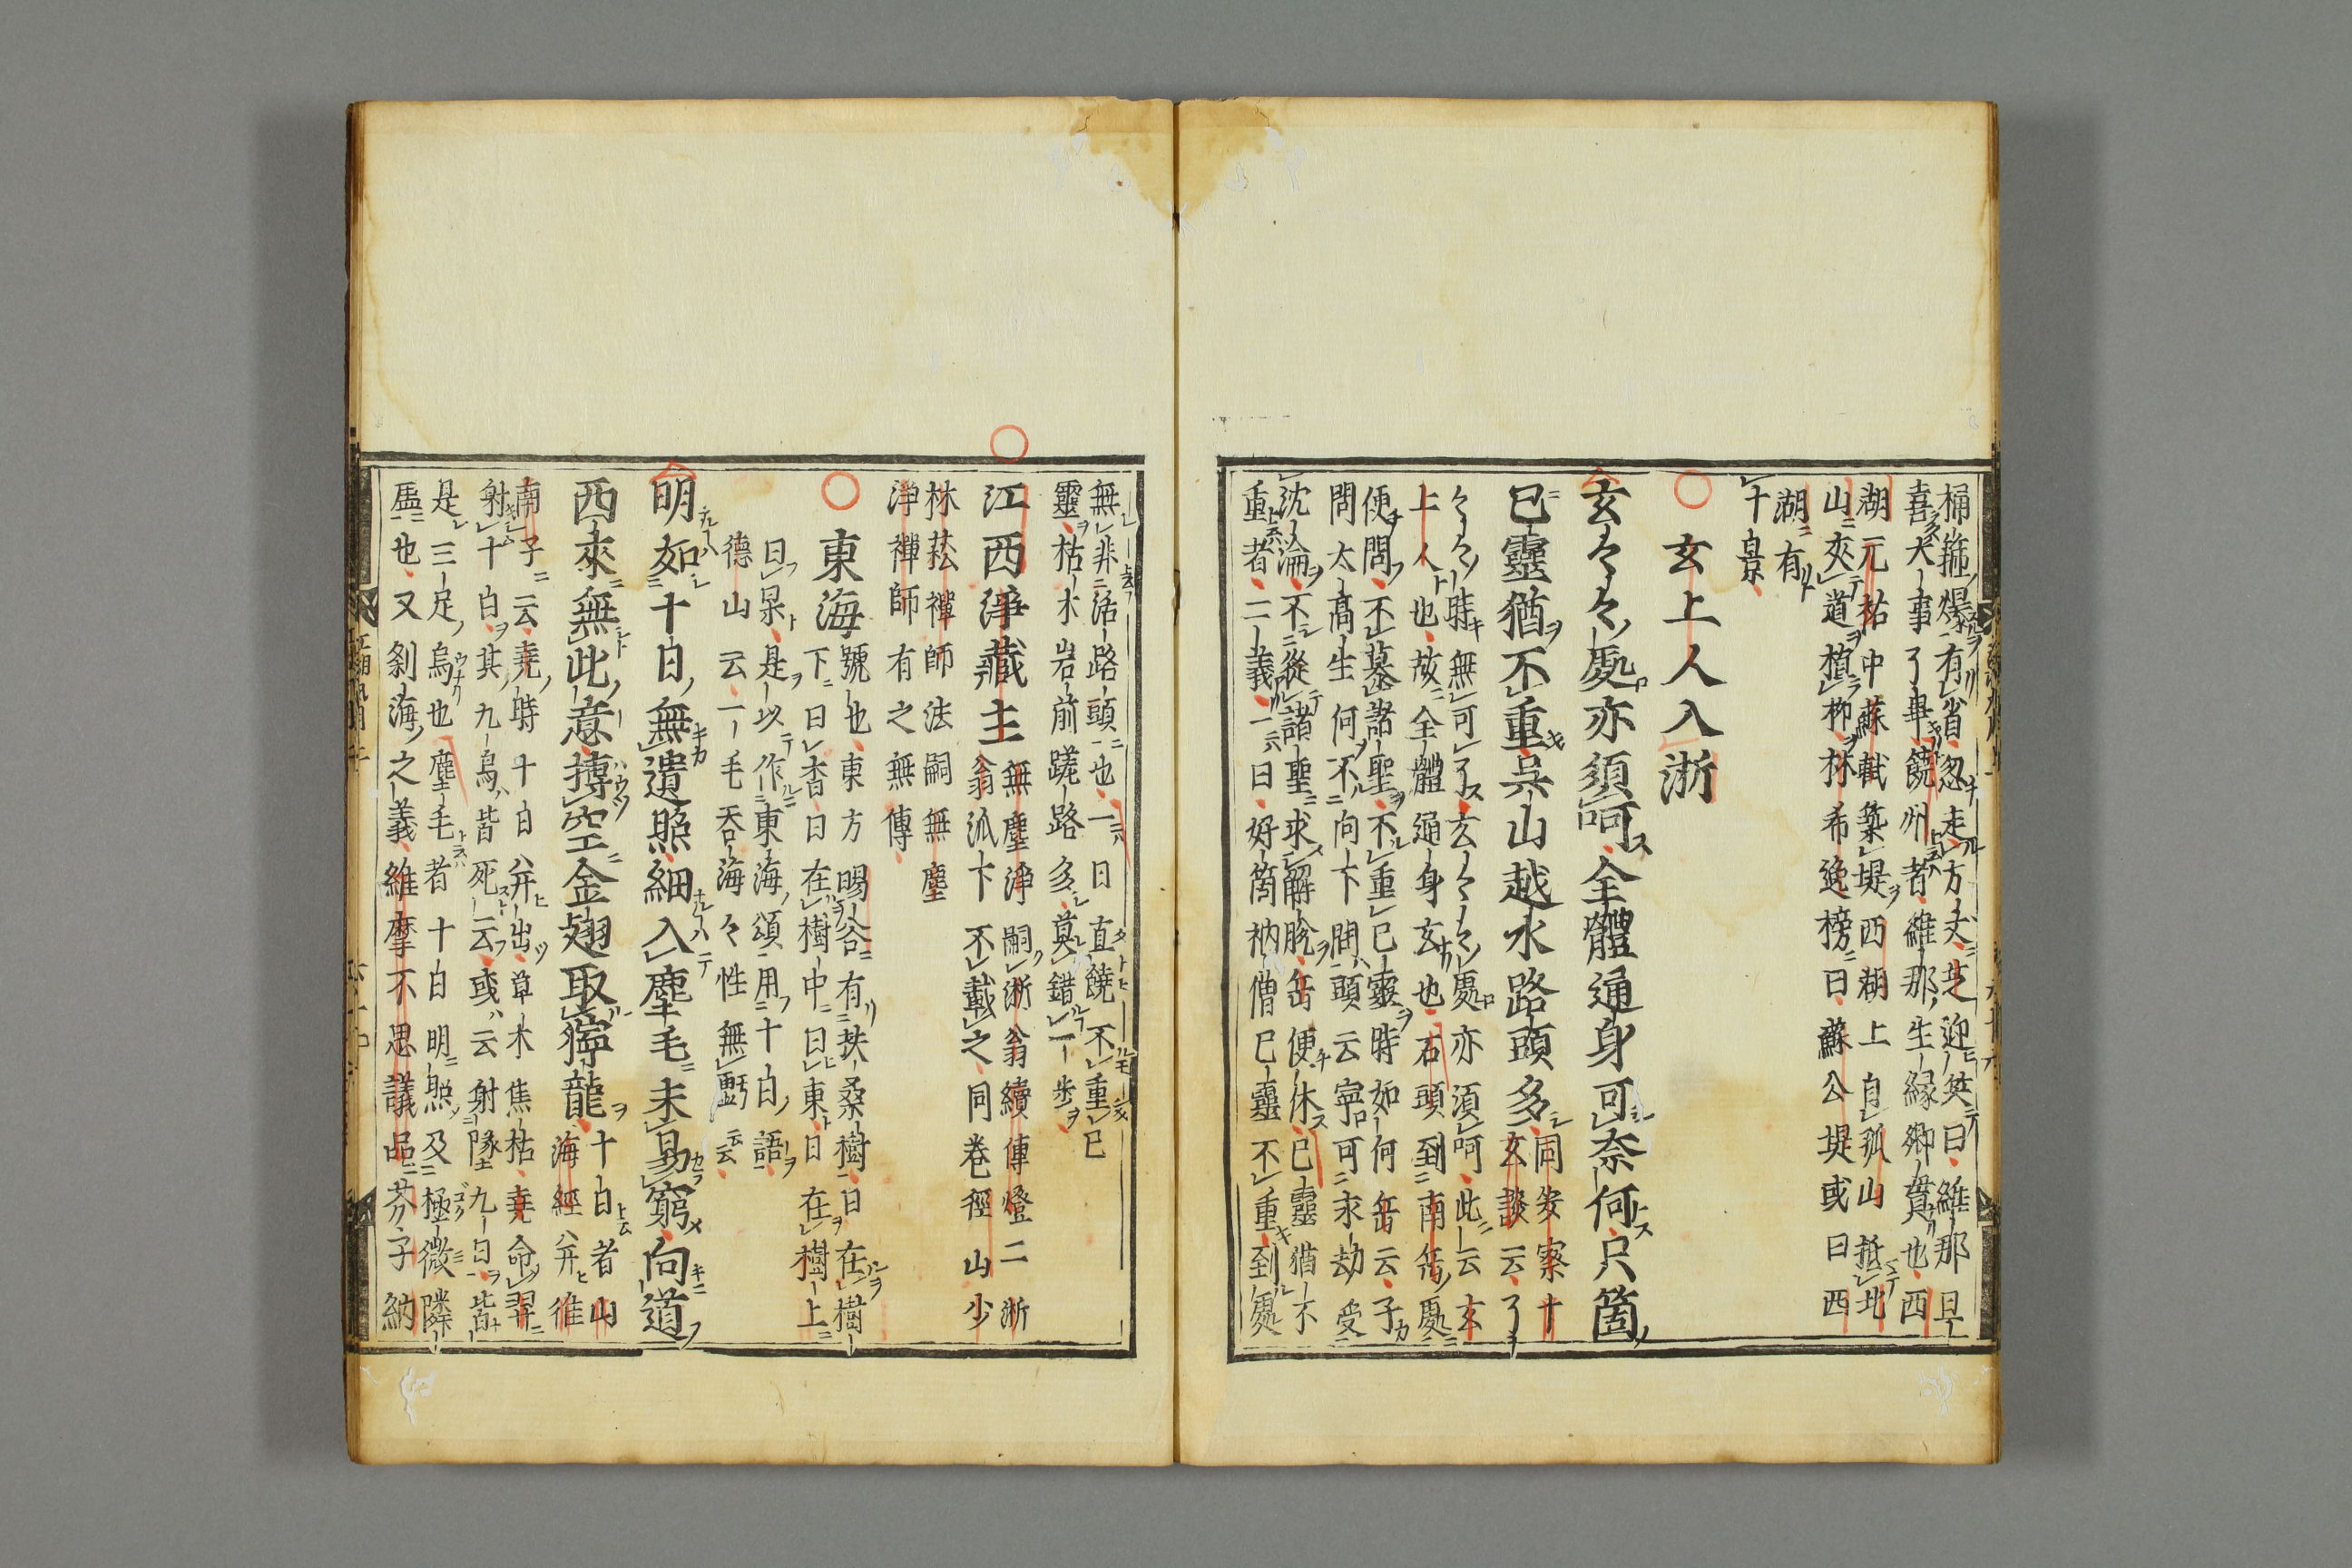 桶箍爆有省忽走方丈芝迎笑曰維那且
喜大事了畢饒州者維那生緣鄉貫也西
湖元祐中蘇軾築堤西湖上自孤山抵北
山夾道植柳林希逸榜曰蘇公堤或曰西
湖有
十景
玄上人入浙
玄々々處亦須呵全體通身可奈何只箇
已靈猶不重吳山越水路頭多同安察十
玄談云了
々々時無可了玄々々處亦須呵此云玄
上人也故全體通身玄也石頭到南岳處
便問不慕諸聖不重已靈時如何岳云子
問太高生何不向下問頭云寧可永劫受
沈淪不從諸聖求解脫岳便休已靈猶不
重者二義一曰好箇衲僧已靈不重到處
無非活路頭也一曰直饒不重已
靈枯木岩前蹉路多莫錯一步
江西淨藏主無塵淨嗣浙翁續傳燈二浙
翁派下不載之同卷徑山少
林菘禪師法嗣無塵
淨禪師有之無傳
東海號也東方暘谷有扶桑樹日在樹
下曰杳日在樹中曰東日在樹上
曰杲是以作東海頌用十日語
德山云一毛吞海々性無虧云云
明如十日無遺照細入塵毛未易窮向道
西來無此意搏空金翅取獰龍十白者山
海經八并維
南子云堯時十日八并出草木焦枯堯命羿
射十白其九烏皆死云或云射墜九日皆
是三足烏也塵毛者十白明照及極微隣
虛也又剎海之義維摩不思議品芥子納